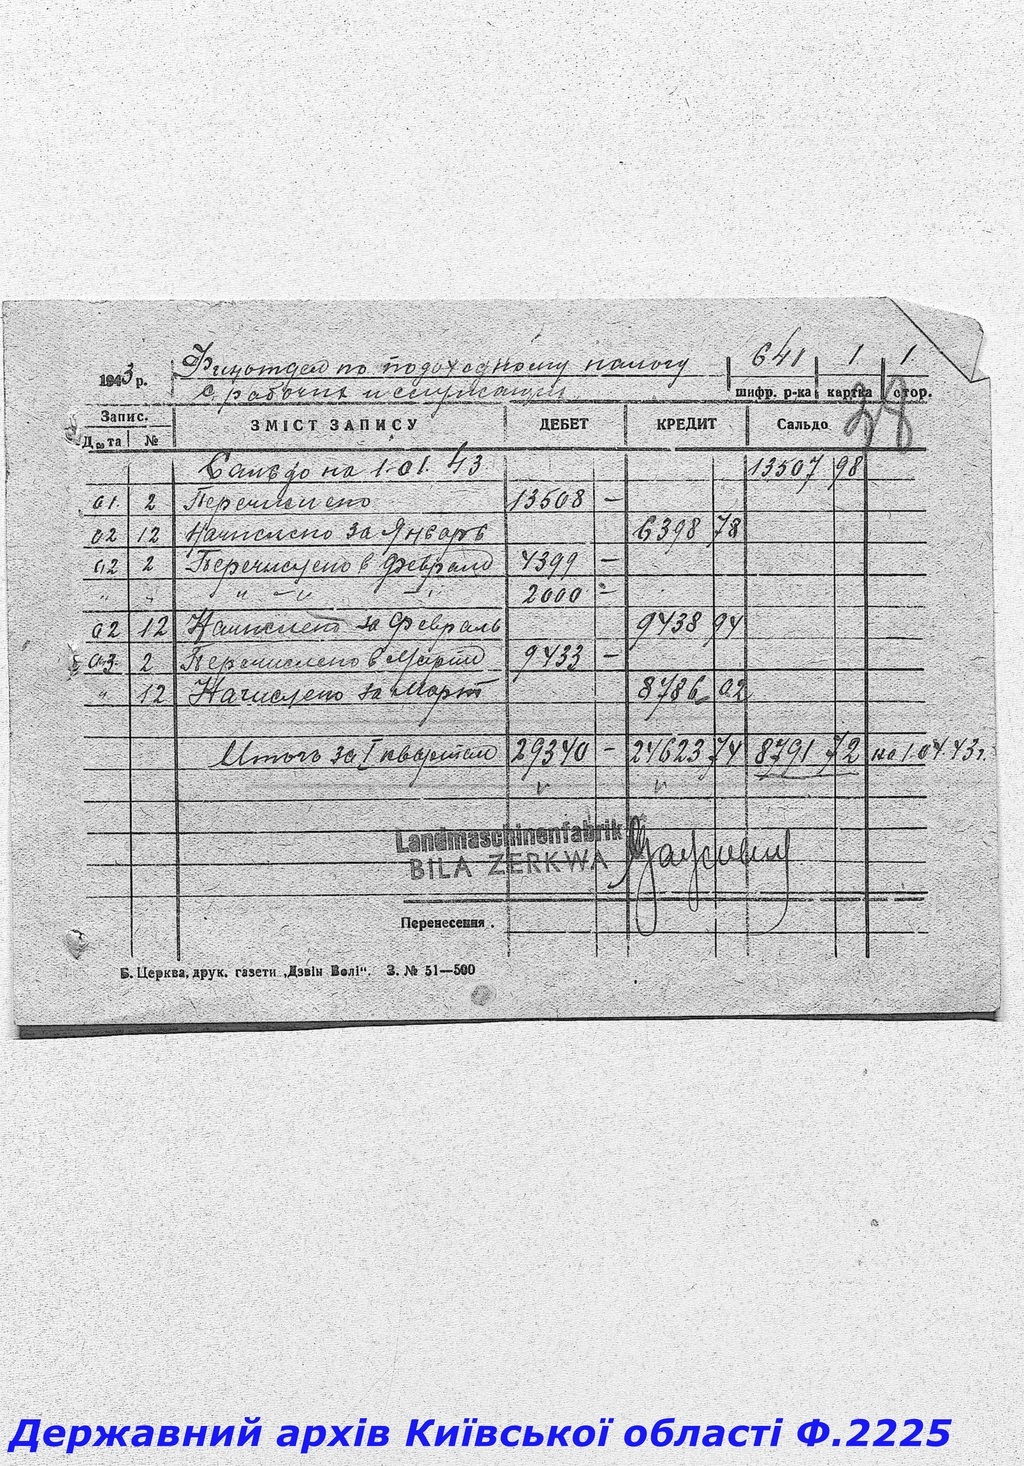 1943 р. Финотдел по подоходному налогу 641 1 1.
с рабочих и служащих шифр. р-ка картка стор.
28
Запис. ЗМІСТ ЗАПИСУ ДЕБЕТ КРЕДИТ Сальдо
Дата №
Сальдо на 1.01.43 13507 98
01. 2 Перечислено 13508 —
02 12 Начислено за Январь 6398 78
02 2 Перечислено в феврале 4399 —
" " " — " — " 2000 =
02 12 Начислено за Февраль 9438 94
03. 2 Перечислено в Марте 9433 —
" 12 Начислено за Март 8786 02
Итого за I квартал 29340 — 24623 74 8791 72 на 1.04.43 г.
Landmaschinenfabrik
BILA ZERKWA
Перенесення.
Б. Церква, друк. газети „Дзвін Волі“. З. № 51—500
Державний архів Київської області Ф.2225